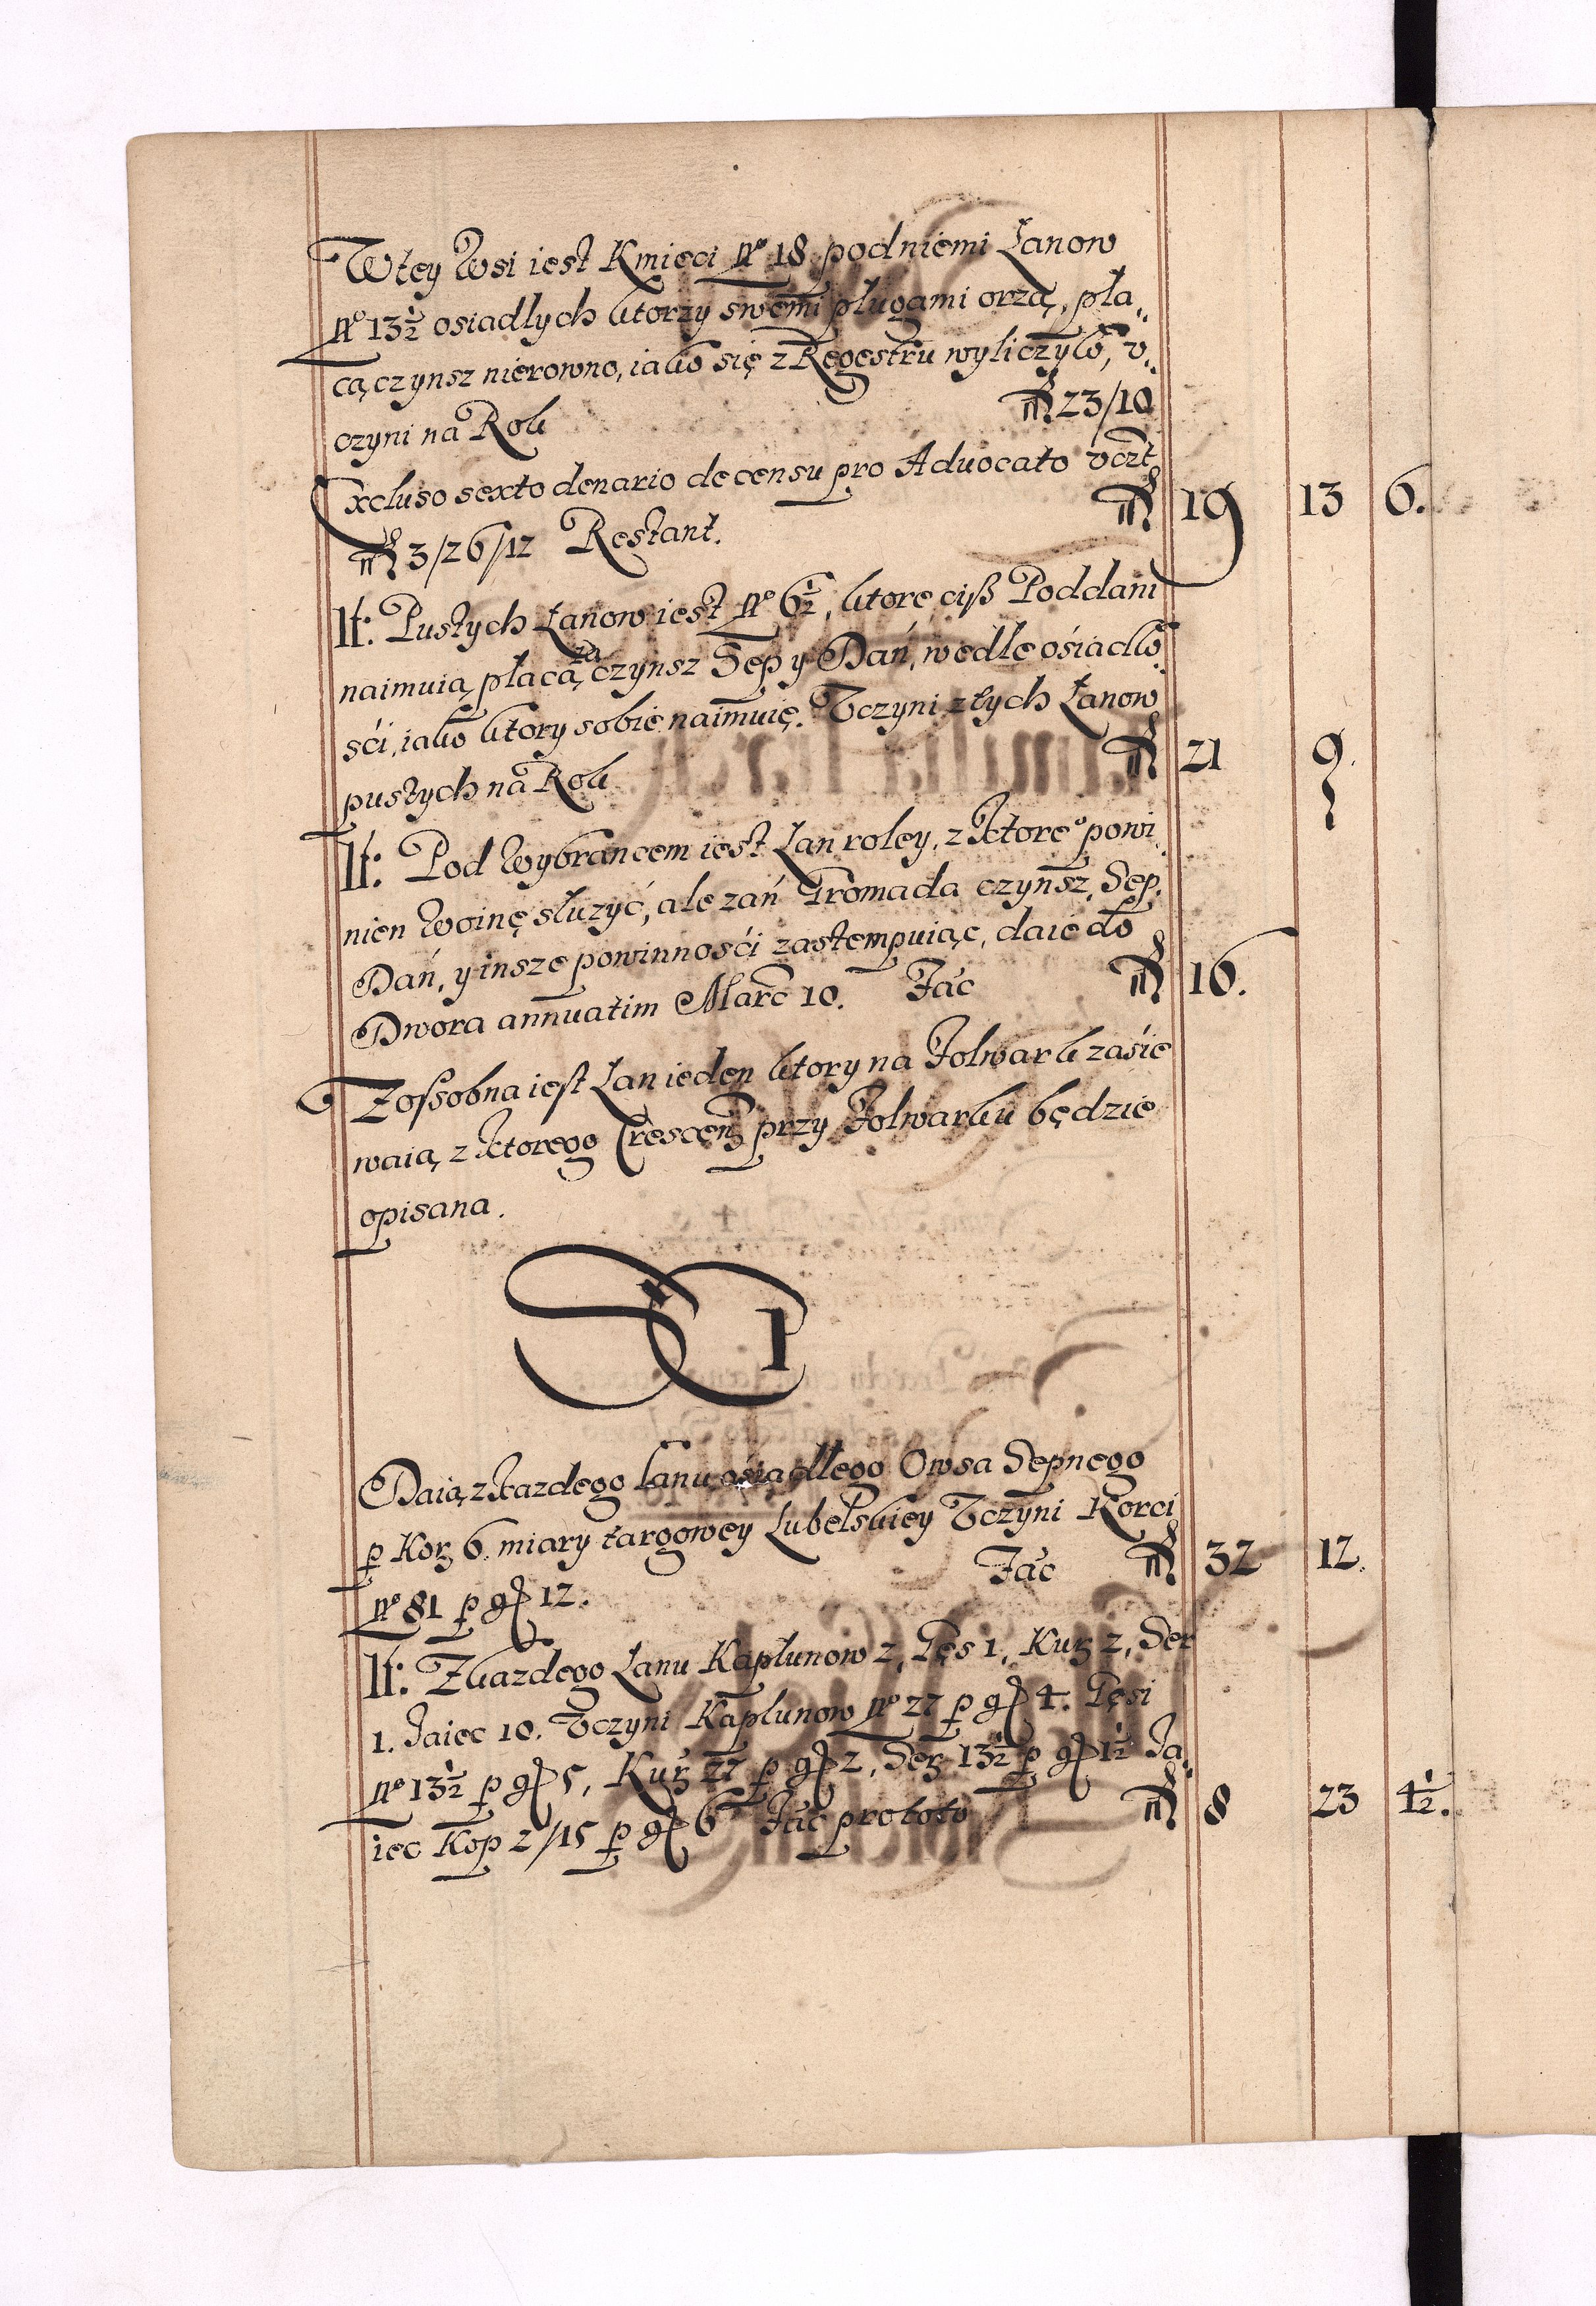 W tey Wsi iest Kmieci No 18 pod niemi Łanow
No 13½ osiadłych ktorzy swemi pługami orzą, pła„
cą, czynsz nierowno, iako się z Regestru wyliczyło, v„
czyni na Rok fl 23/10
Excluso sexto denario de censu pro Advocato vczt
fl 3/26/12 Restant. fl 19 13 6.
It: Pustych Łanow iest No 6½, ktore ciß Poddani
naimuią, płacą za czynsz Sep y Dań, wedle ośiadło
śći, iako ktory sobie naimuię. Vczyni z tych Łanow
pustych na Rok fl 21 9.
It: Pod Wybrancem iest Łan roley, z ktoreo powi„
nien Woinę służyć, ale zań Gromada czynsz, Sep,
Dań, y insze powinnosći zastempuiąc, daie do
Dwora annuatim Marc 10. Fac fl 16.
Z ossobna iest Łan ieden ktory na Folwark zaśie
waią, z ktorego Crescen przy Folwarku będzie
opisana.
SEP
Daią z kazdego Łanu ośiadłego Owsa Sepnego
p Kor 6. miary targowey Lubelskiey Vczyni Korci
No 81 p g 12. Fac fl 32 12.
It: Z kazdego Łanu Kapłunow 2, Gęś 1, Kur 2, Ser
1. Jaiec 10. Vczyni Kapłunow No 27 p g 4. Gęsi
No 13½ p g 5, Kur 27 p g 2, Ser 13½ p g 1½ Ja„
iec Kop 2/15 p g 6 Fac pro toto fl 8 23 4½.